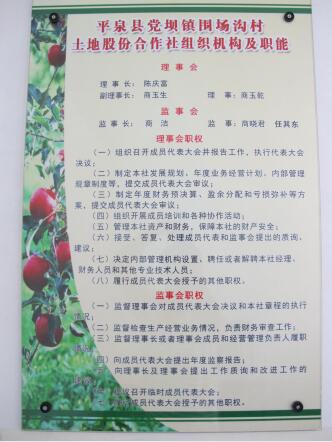 平泉县党坝镇围场沟村
土地股份合作社组织机构及职能
理 事 会
理 事 长： 陈庆富
副理事长： 商玉生 理 事：商玉乾
监 事 会
监 事 长： 商 洁 监 事：商晓君 任其东
理事会职权
（一）组织召开成员代表大会并报告工作，执行代表大会
决议；
（二）制定本社发展规划、年度业务经营计划、内部管理
规章制度等，提交成员代表大会审议；
（三）制定年度财务预决算、盈余分配和亏损弥补等方
案，提交成员代表大会审议；
（四）组织开展成员培训和各种协作活动；
（五）管理本社资产和财务，保障本社的财产安全；
（六）接受、答复、处理成员代表和监事会提出的质询、
建议；
（七）决定内部管理机构设置、聘任或者解聘本社经理、
财务人员和其他专业技术人员；
（八）履行成员代表大会授予的其他职权。
监事会职权
（一）监督理事会对成员代表大会决议和本社章程的执行
情况；
（二）监督检查生产经营业务情况，负责财务审查工作；
（三）监督理事长或者理事会成员和经营管理负责人履职
情况；
（四）向成员代表大会提出年度监察报告；
（五）向理事长及理事会提出工作质询和改进工作的
建议；
议召开临时成员代表大会；
成员代表大会授予的其他职权。